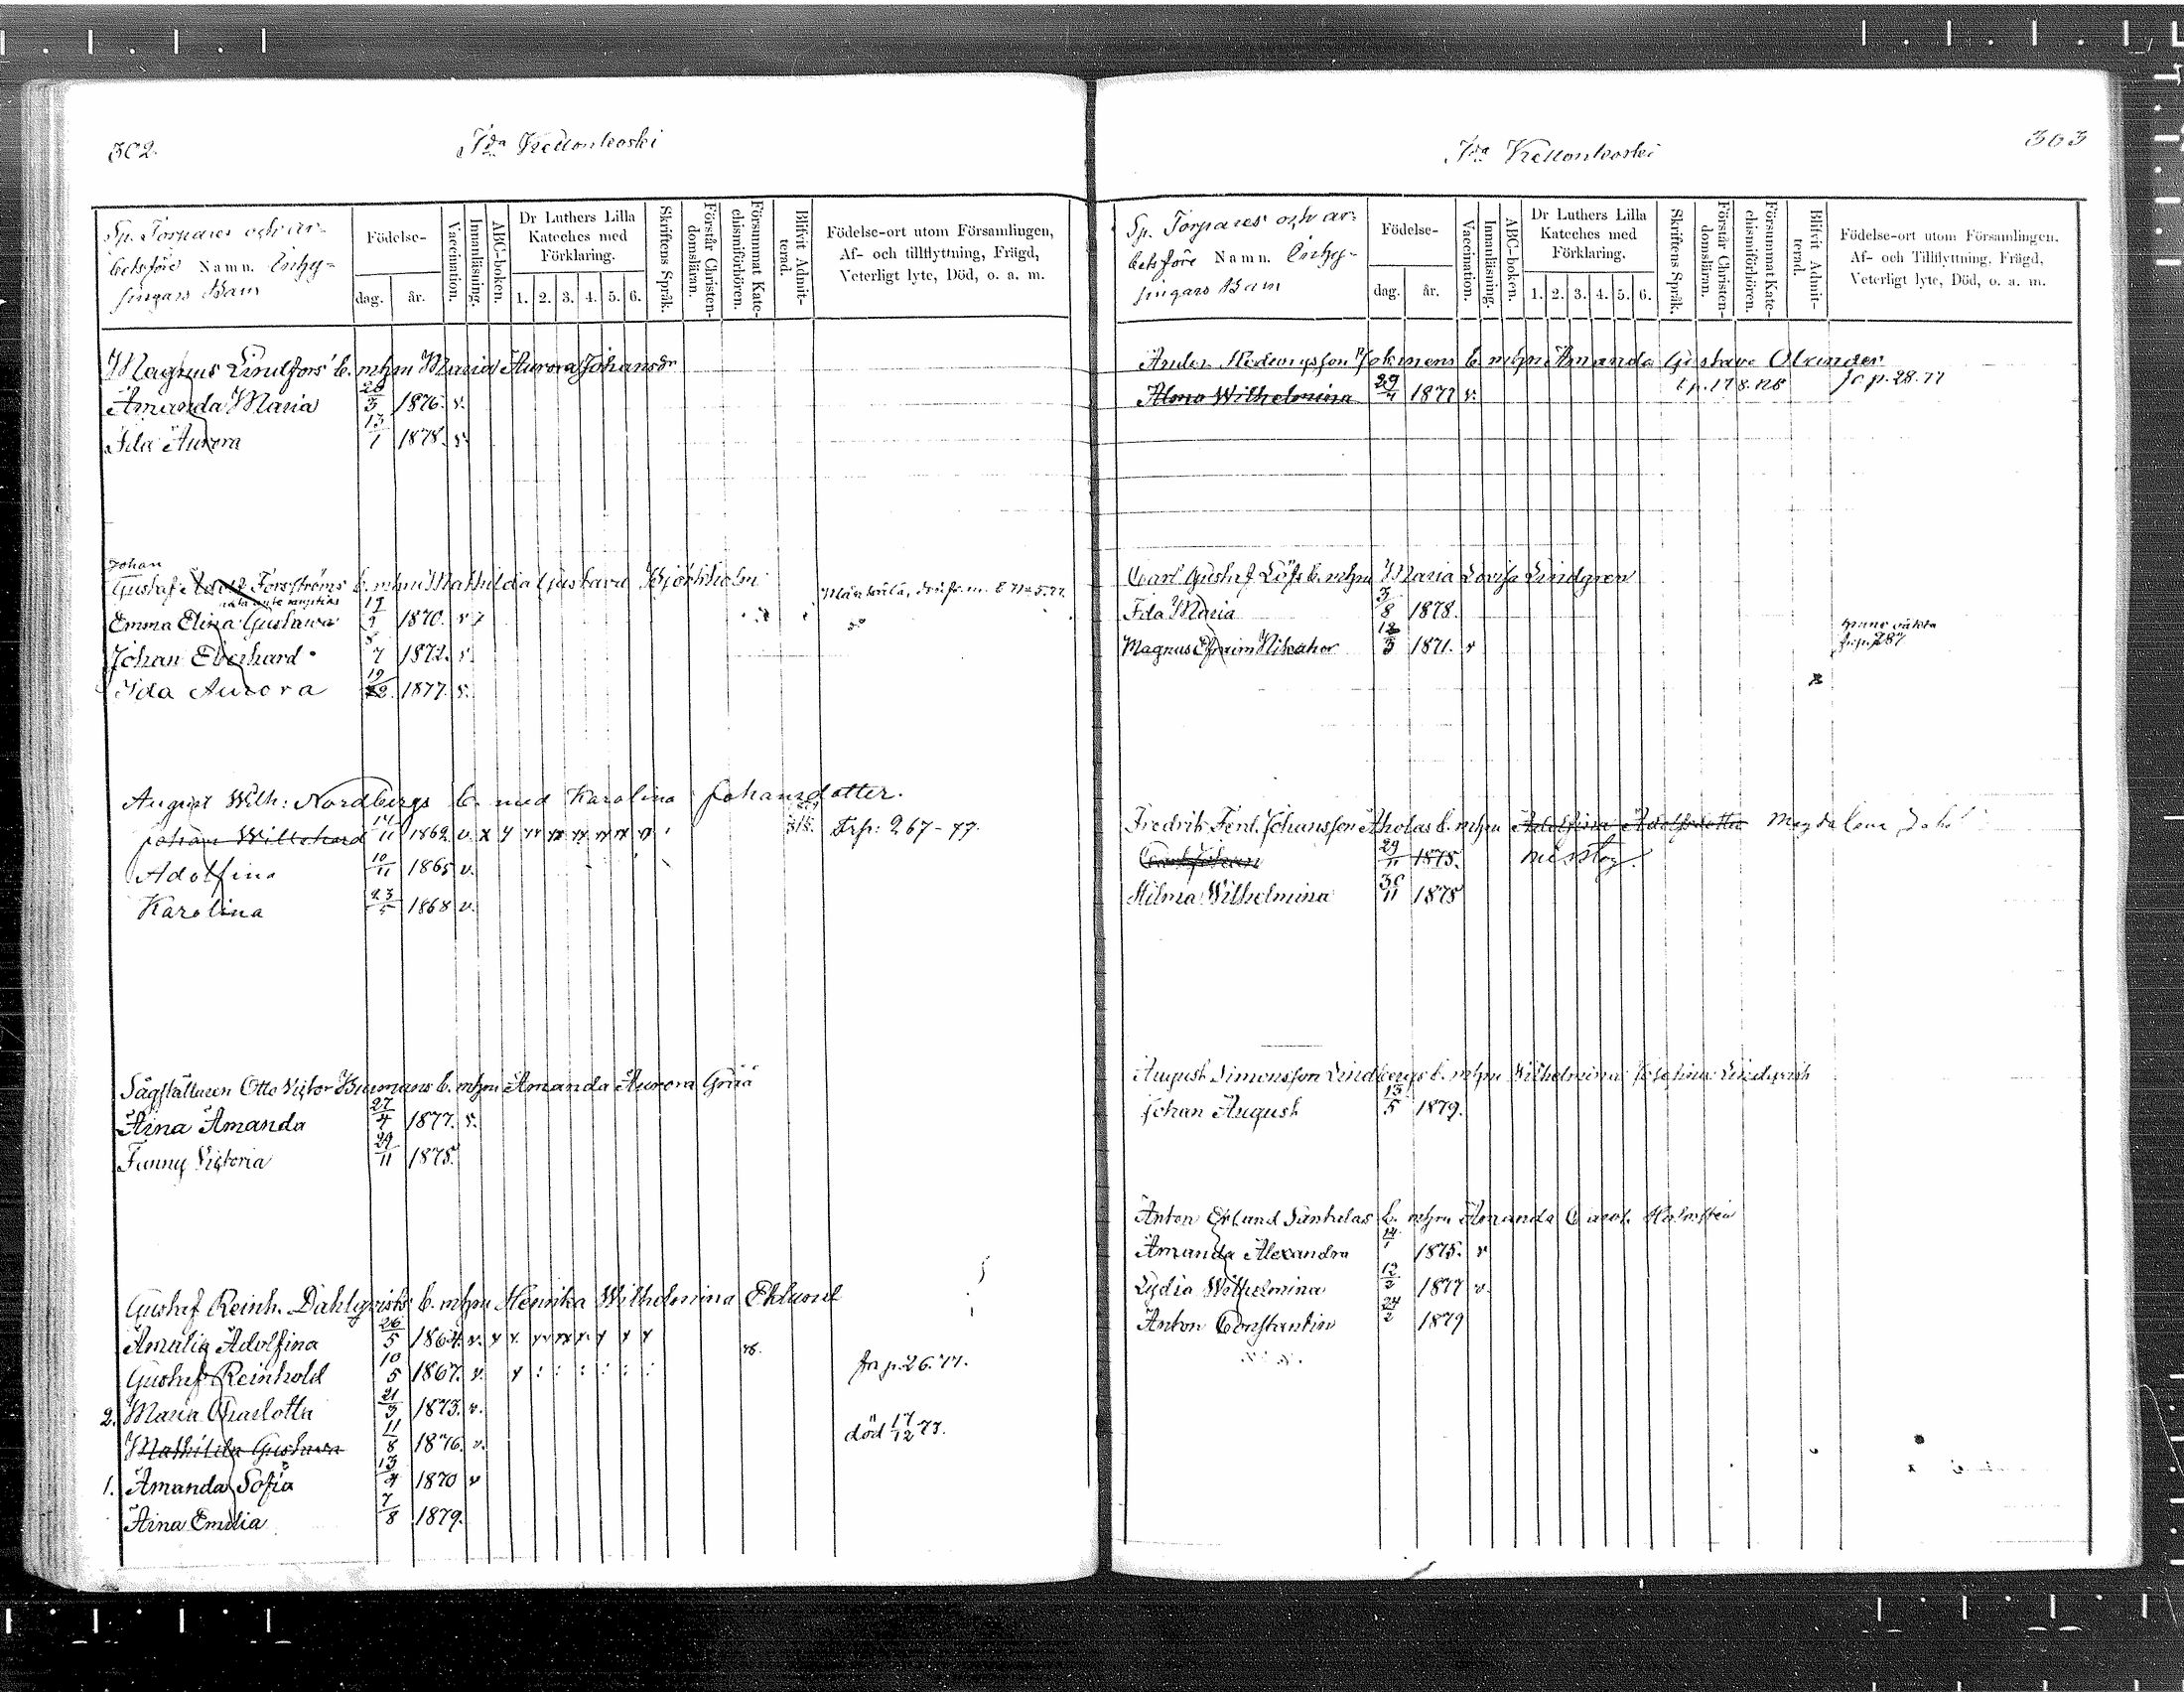 302.
Kellonkoski
Sp. Torpares och ar-
betsföre Namn. Inhy-
singars Barn
Födelse-
dag.
år.
Vaccination.
Innanläsning.
ABC-boken.
Dr Luthers Lilla
Kateches med
Förklaring.
1. 2. 3. 4. 5. 6.
Skriftens Språk.
Förstår Christen-
domsläran.
Försummat Kate-
chismiförhören.
Blifvit Admit-
terad.
Födelse-ort utom Församlingen,
Af- och tillflyttning, Frägd,
Veterligt lyte, Död, o. a. m.
Magnus Lindfors' b. m hm Maria Aurora Johansdr
Amanda Maria 3 1876. v.
Ida Aurora 13/1 1878. v.
Johan
Gustaf Forsströms b. m hm Mathilda Gustava Björkholm
Emma Elina Gustava 1870. v
Johan Eberhard 7 1872. v.
Ida Aurora 19 1877. v.
August Wilh: Nordbergs b. med Karolina Johansdotter.
Johan Willehard 14/11 1862 v. Trp: 267-77.
Adolfina 10/11 1865 v.
Karolina 23/5 1868 v.
Sågställaren Otto Victor b. m hm Amanda Aurora
Aina Amanda 27/4 1877. v.
Fanny Victoria 29/11 1878.
Gustaf Reinh. Dahlqvists b. m hm Henrika Wilhelmina Eklund
Amalia Adolfina 26/5 1864. v.
Gustaf Reinhold 10/5 1867. v. fr p. 26. 77.
2. Maria Charlotta 21/3 1873. v.
Mathilda Gustava 11/8 1876. v. död 17/12 77.
1. Amanda Sofia 13 1870 v
Aina Emilia 7/8 1879.
303
Kellonkoski
Sp. Torpares och ar-
betsföre Namn. Inhy-
singars Barn
Födelse-
dag.
år.
Vaccination.
Innanläsning.
ABC-boken.
Dr Luthers Lilla
Kateches med
Förklaring.
1. 2. 3. 4. 5. 6.
Skriftens Språk.
Förstår Christen-
domsläran.
Försummat Kate-
chismiförhören.
Blifvit Admit-
terad.
Födelse-ort utom Församlingen.
Af- och Tillflyttning, Frägd,
Veterligt lyte, Död, o. a. m.
Ander Hedvigsson b. m hm Amanda Gustava
Alma Wilhelmina 29 1877 v. p. 28. 77
Carl Gustaf Löfs b. m hm Maria Lovisa Lindgren
Ida Maria 3/8 1878.
Magnus Efraim Nikanor 12/3 1871. v
Fredrik Ferd. Johansson Aholas b. m hm Adolfina Adolfsdotter Magdalena
29/11 1875. misstog
Hilma Wilhelmina 30/11 1878
August Simonsson Lindbergs b. m hm Wilhelmina Josefina Lindqvist
Johan August 13/5 1879.
Anton Erland b. m hm Amanda Carol. Holmsten
Amanda Alexandra 14/1 1875. v
Lydia Wilhelmina 12/2 1877 v.
Anton Constantin 24/2 1879